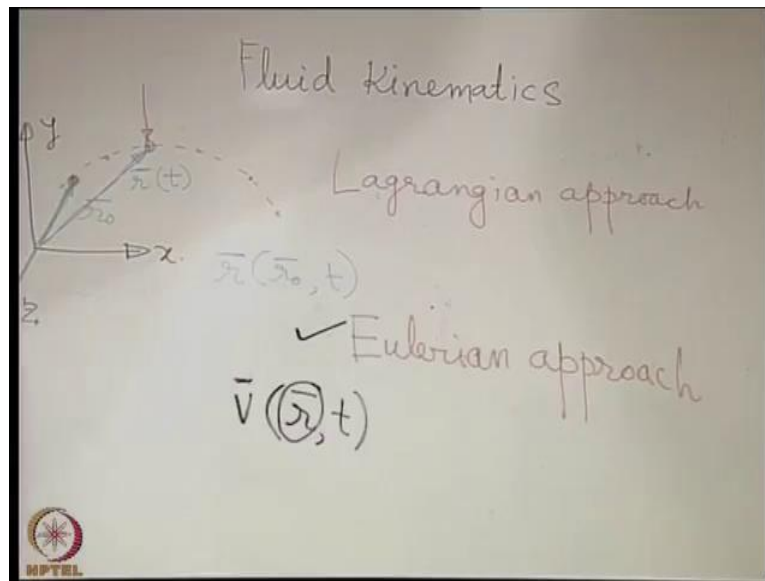 Fluid Kinematics
y
r̄(t)
r̄₀
x
z
Lagrangian approach
r̄(r̄₀, t)
✓ Eulerian approach
v̄(r̄, t)
NPTEL